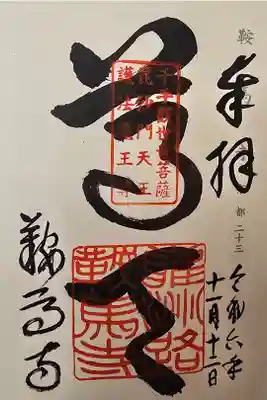 鞍
奉拝
都 二十三
令和六年
十一月十二日
尊天
千手観世音菩薩
毘沙門天王
護法魔王尊
雍州路
鞍馬寺
鞍馬寺